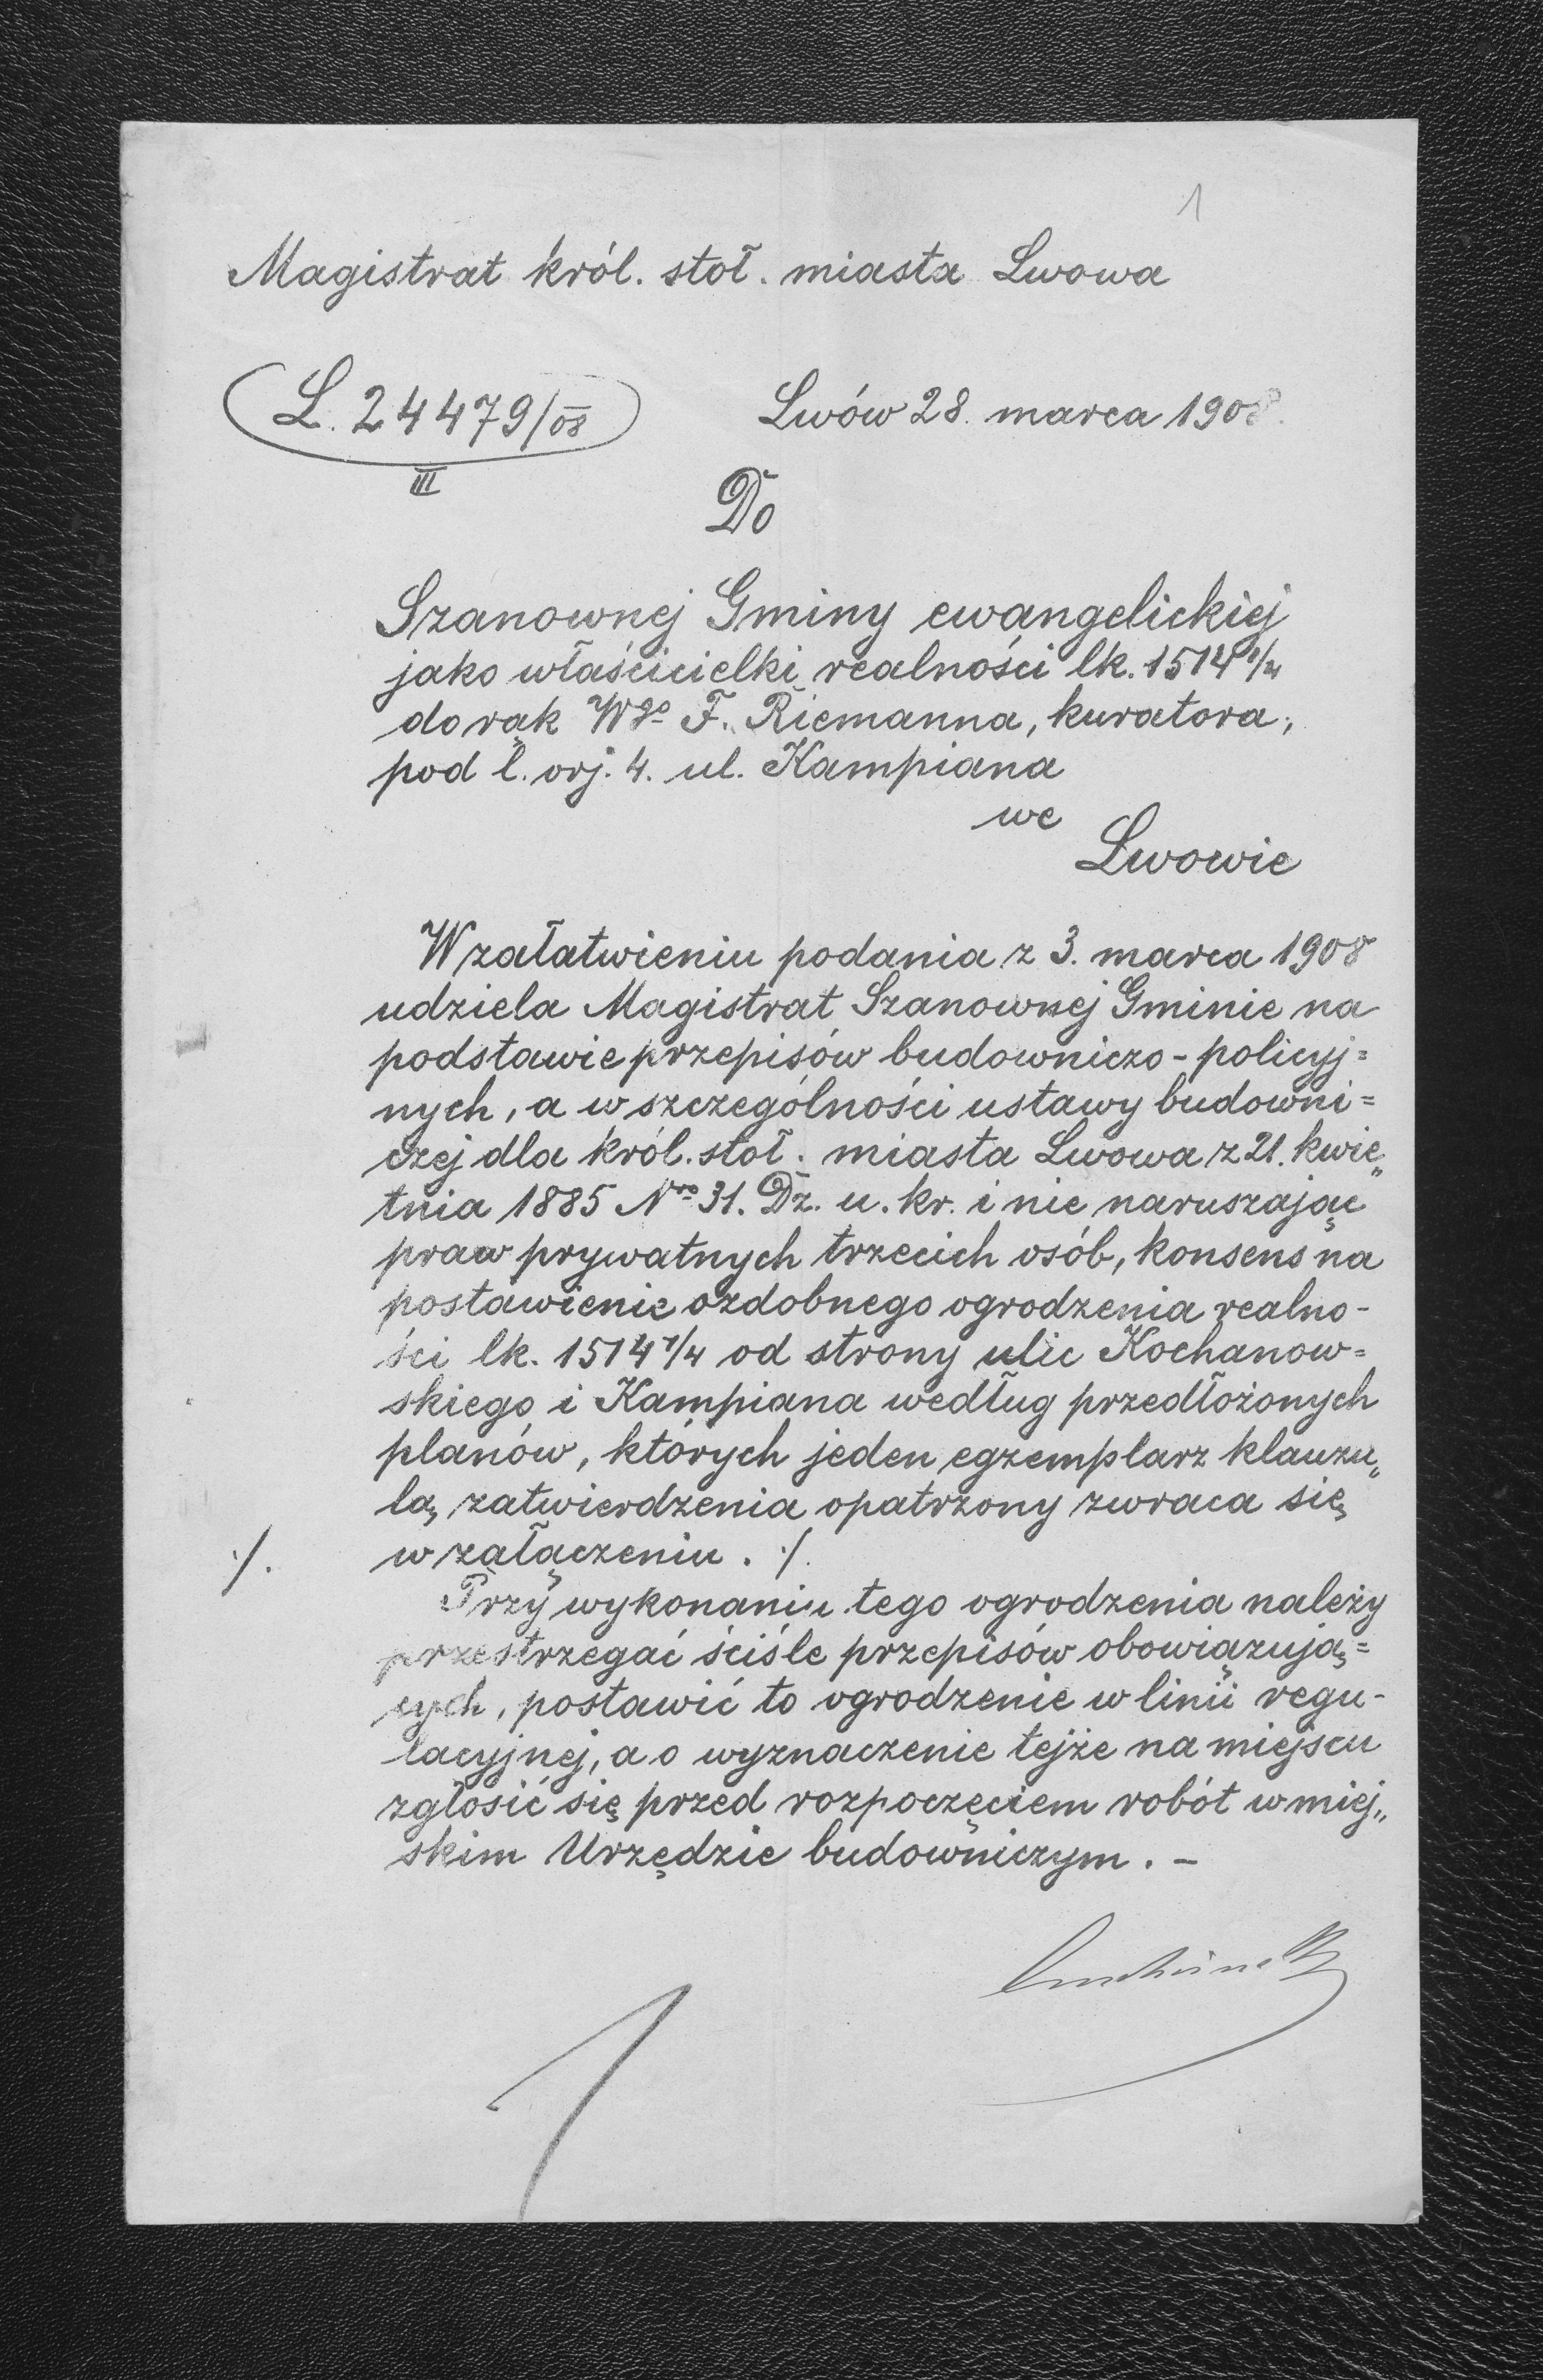 1
Magistrat król. stoł. miasta Lwowa
L. 24479/08
III
Lwów 28. marca 1908.
Do
Szanownej Gminy ewangelickiej
jako właścicielki realności lk. 1514 1/4
do rąk Wgo F. Riemanna, kuratora,
pod l. orj. 4. ul. Kampiana
we
Lwowie
W załatwieniu podania z 3. marca 1908
udziela Magistrat Szanownej Gminie na
podstawie przepisów budowniczo-policyj=
nych, a w szczególności ustawy budowni=
czej dla król. stoł. miasta Lwowa z 21. kwie„
tnia 1885 Nro 31. Dz. u. kr. i nie naruszając
praw prywatnych trzecich osób, konsens na
postawienie ozdobnego ogrodzenia realno-
ści lk. 1514 1/4 od strony ulic Kochanow=
skiego i Kampiana według przedłożonych
planów, których jeden egzemplarz klauzu„
lą zatwierdzenia opatrzony zwraca się
./. w załączeniu. ./.
Przy wykonaniu tego ogrodzenia należy
przestrzegać ściśle przepisów obowiązują=
cych, postawić to ogrodzenie w linii regu-
lacyjnej, a o wyznaczenie tejże na miejscu
zgłosić się przed rozpoczęciem robót w miej„
skim Urzędzie budowniczym. -